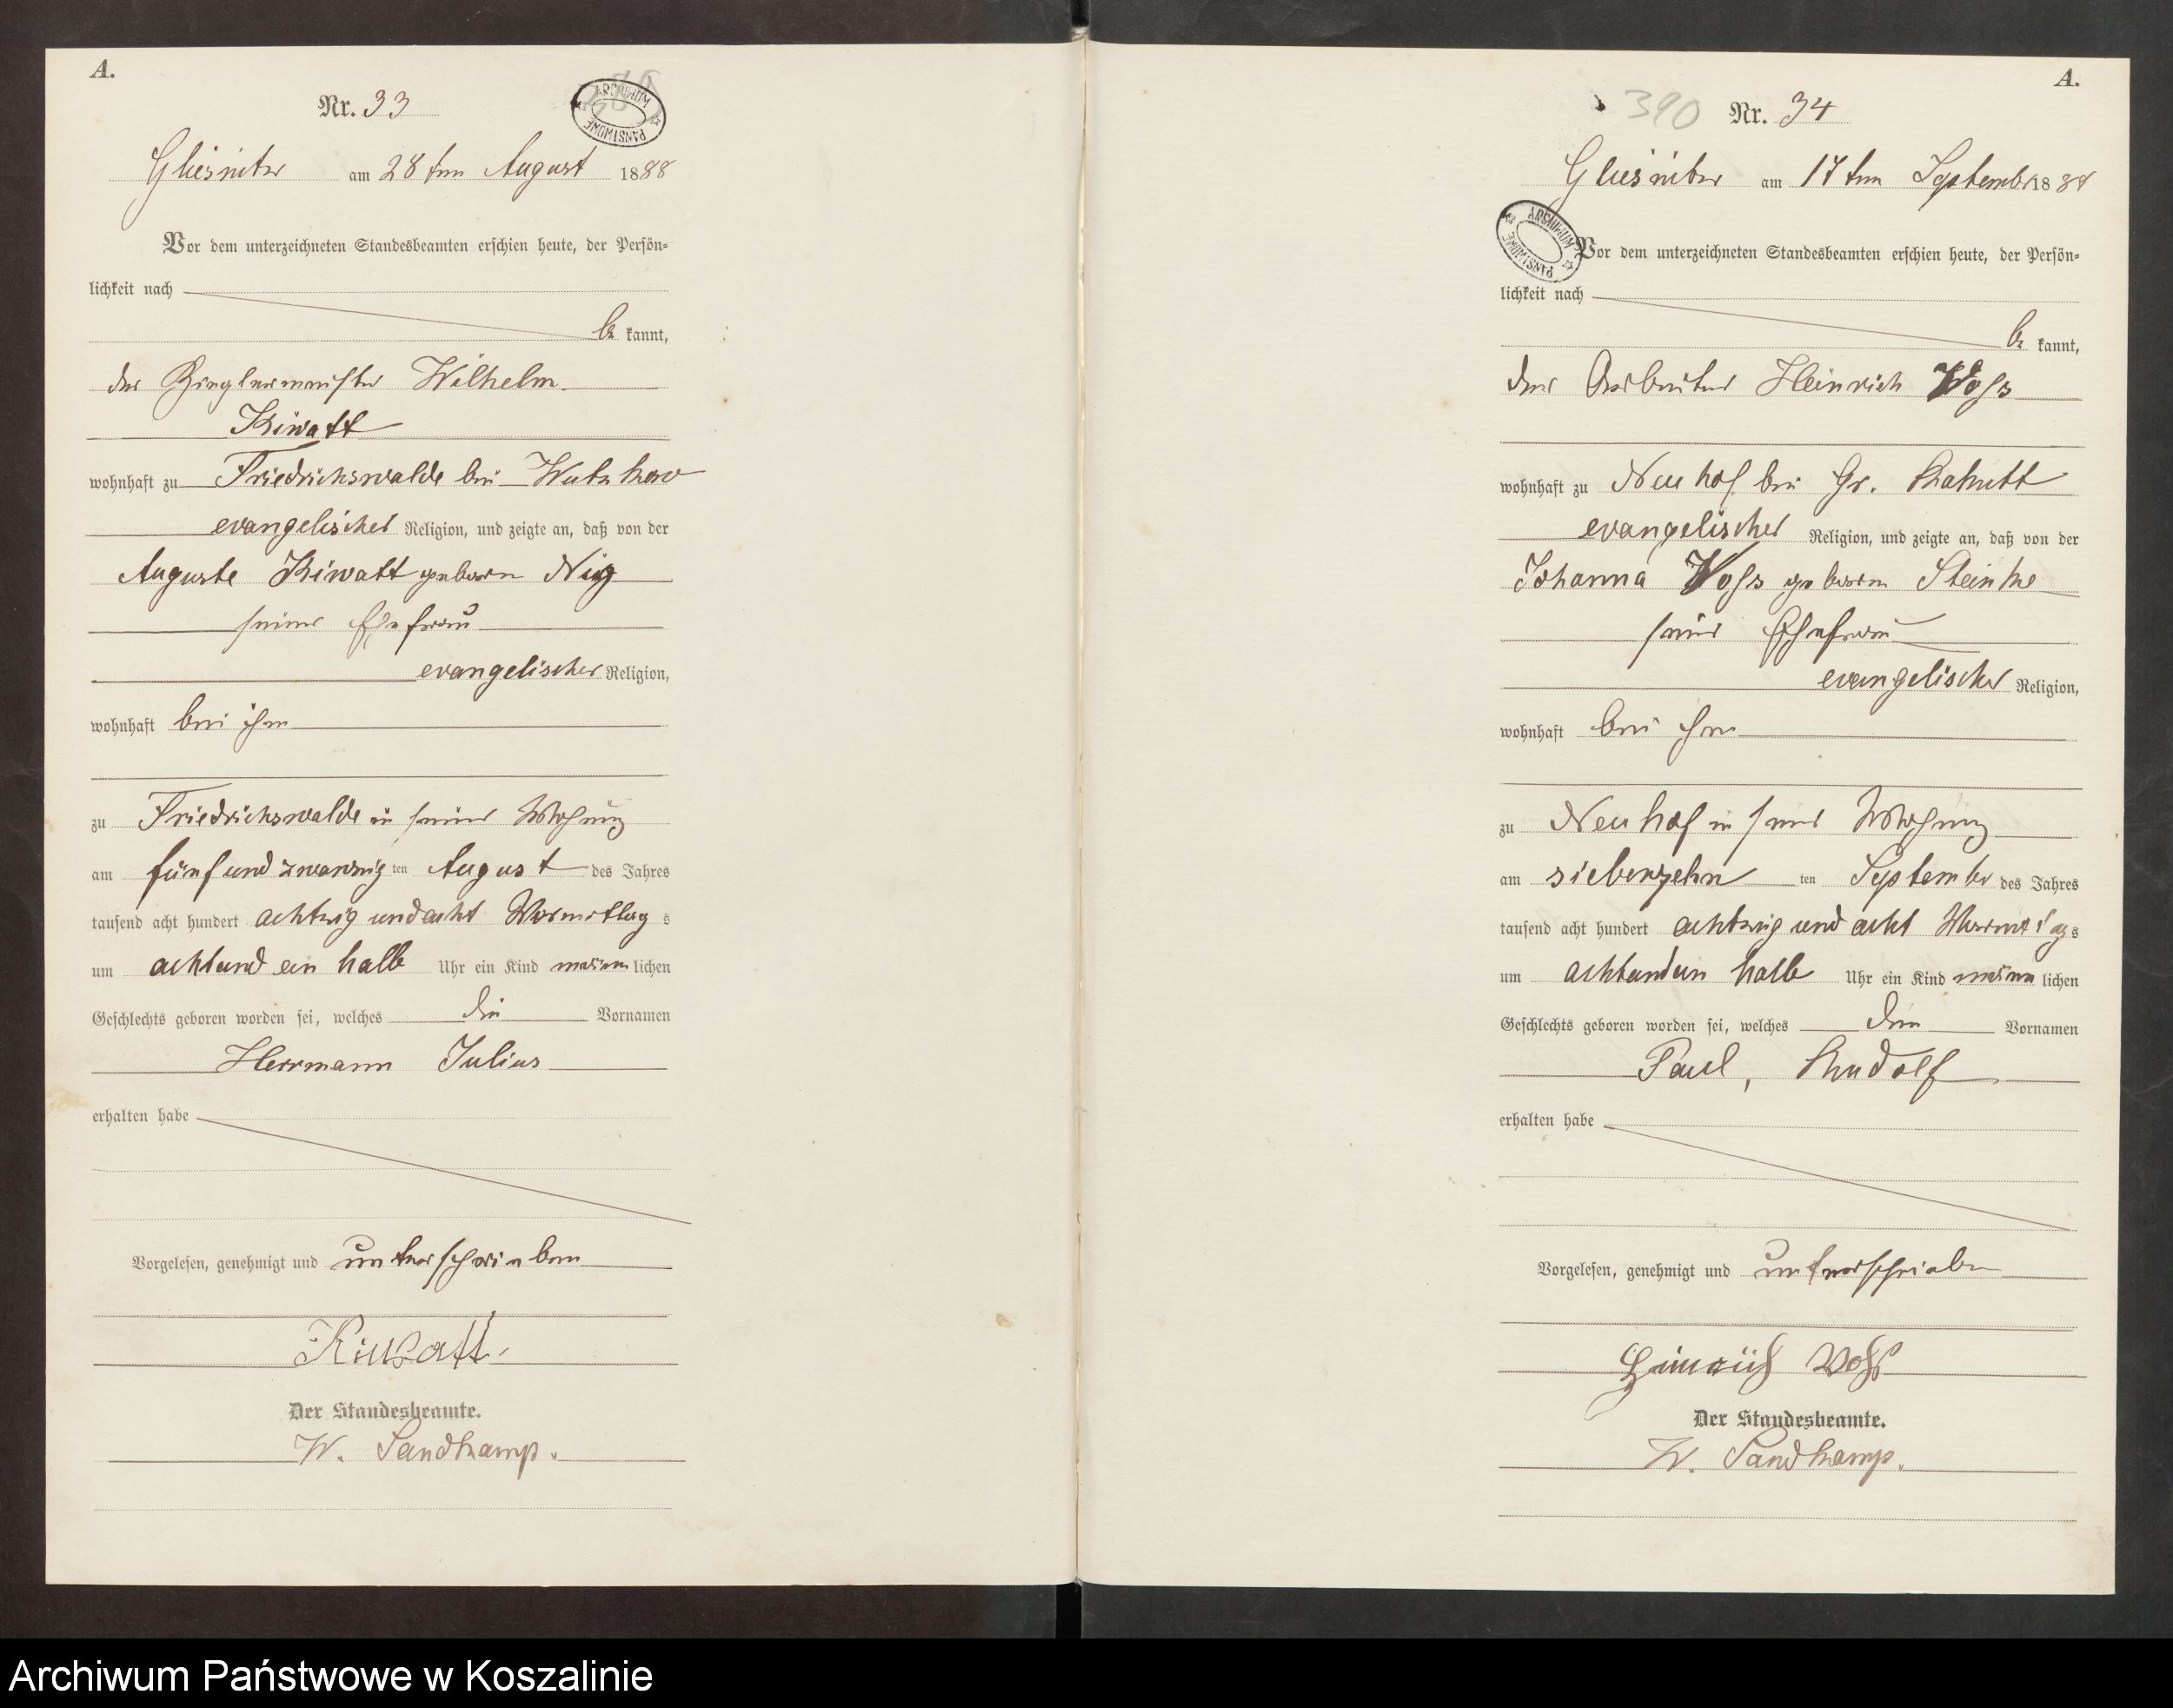 A.
Nr. 33
ARCHIWUM PAŃSTWOWE
Gliesnitz am 28ten August 1888
Vor dem unterzeichneten Standesbeamten erschien heute, der Persön=
lichkeit nach
be kannt,
der Zieglermeister Wilhelm
Kiwatt
wohnhaft zu Friedrichswalde bei Wutzkow
evangelischer Religion, und zeigte an, daß von der
Auguste Kiwatt geboren
seiner Ehefrau
evangelischer Religion,
wohnhaft bei ihm
zu Friedrichswalde in seiner Wohnung
am fünfundzwanzig ten August des Jahres
tausend acht hundert achtzig und acht Vormittag s
um acht und ein halb Uhr ein Kind männ lichen
Geschlechts geboren worden sei, welches die Vornamen
Herrmann Julius
erhalten habe
Vorgelesen, genehmigt und unterschrieben
Kiwatt.
Der Standesbeamte.
W. Sandkamp.
A.
390 Nr. 34
Gliesnitz am 17ten September 1888
ARCHIWUM PAŃSTWOWE
Vor dem unterzeichneten Standesbeamten erschien heute, der Persön=
lichkeit nach
be kannt,
der Arbeiter Heinrich Voss
wohnhaft zu Neuhof bei Gr. Rakitt
evangelischer Religion, und zeigte an, daß von der
Johanna Voss geboren Steinke
seiner Ehefrau
evangelischer Religion,
wohnhaft bei ihm
zu Neuhof in seiner Wohnung
am siebenzehn ten September des Jahres
tausend acht hundert achtzig und acht Vormittag s
um acht und ein halb Uhr ein Kind männ lichen
Geschlechts geboren worden sei, welches den Vornamen
Paul, Rudolf
erhalten habe
Vorgelesen, genehmigt und unterschrieben
Heinrich Voß
Der Standesbeamte.
W. Sandkamp.
Archiwum Państwowe w Koszalinie